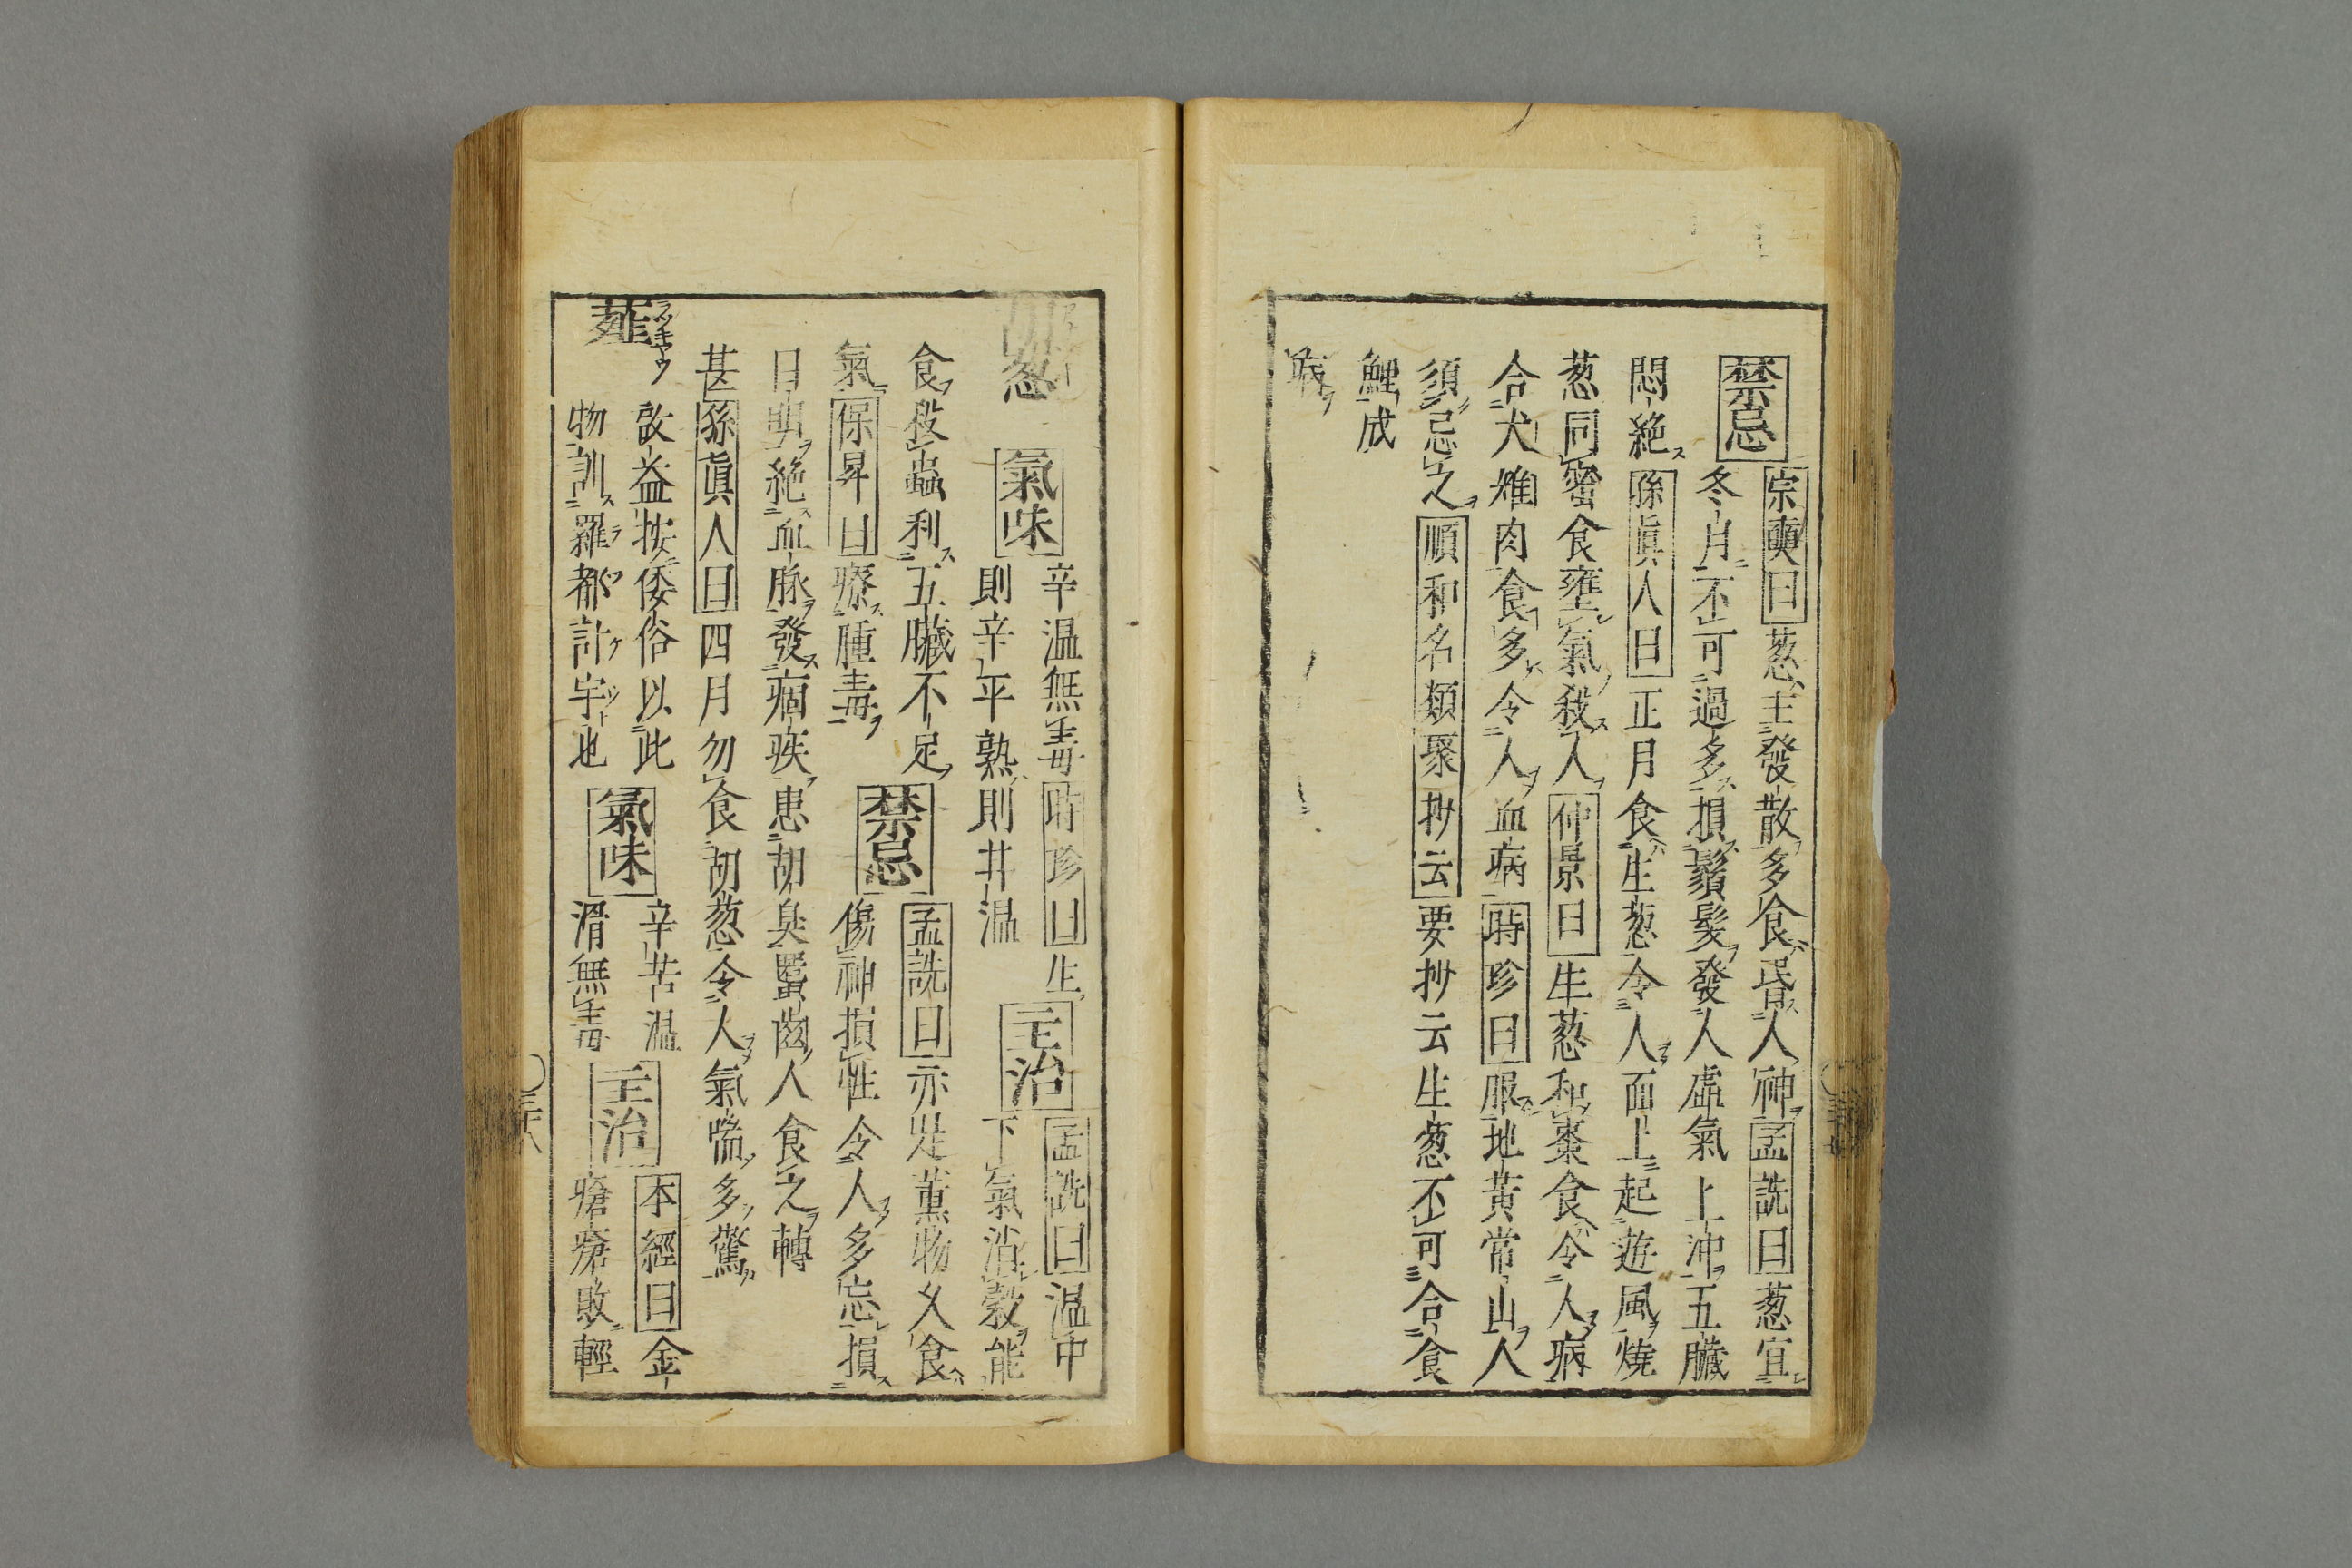 禁忌
宗奭曰葱主發散多食昏人神孟詵曰葱宜
冬月不可過多損鬚髮發人虛氣上冲五臟
悶絶孫眞人曰正月食生葱令人面上起遊風燒
葱同蜜食壅氣殺人仲景曰生葱和棗食令人病
合犬雉肉食多令人血病時珍曰服地黃常山人
須忌之順和名類聚抄云要抄云生葱不可合食
鯉成
病
胡葱
氣味
辛温無毒時珍曰生
則辛平熟則甘温
主治
孟詵曰温中
下氣消穀能
食殺蟲利五臟不足
氣保昇曰療腫毒
禁忌
孟詵曰亦是薰物久食
傷神損性令人多忘損
目明絶血脉發痼疾患胡臭䘌齒人食之轉
甚孫眞人曰四月勿食胡葱令人氣喘多驚
薤
啟益按倭俗以此
物訓羅都計宇也
ラ ツ ケ ウ
氣味
辛苦温
滑無毒
主治
本經曰金
瘡瘡敗輕